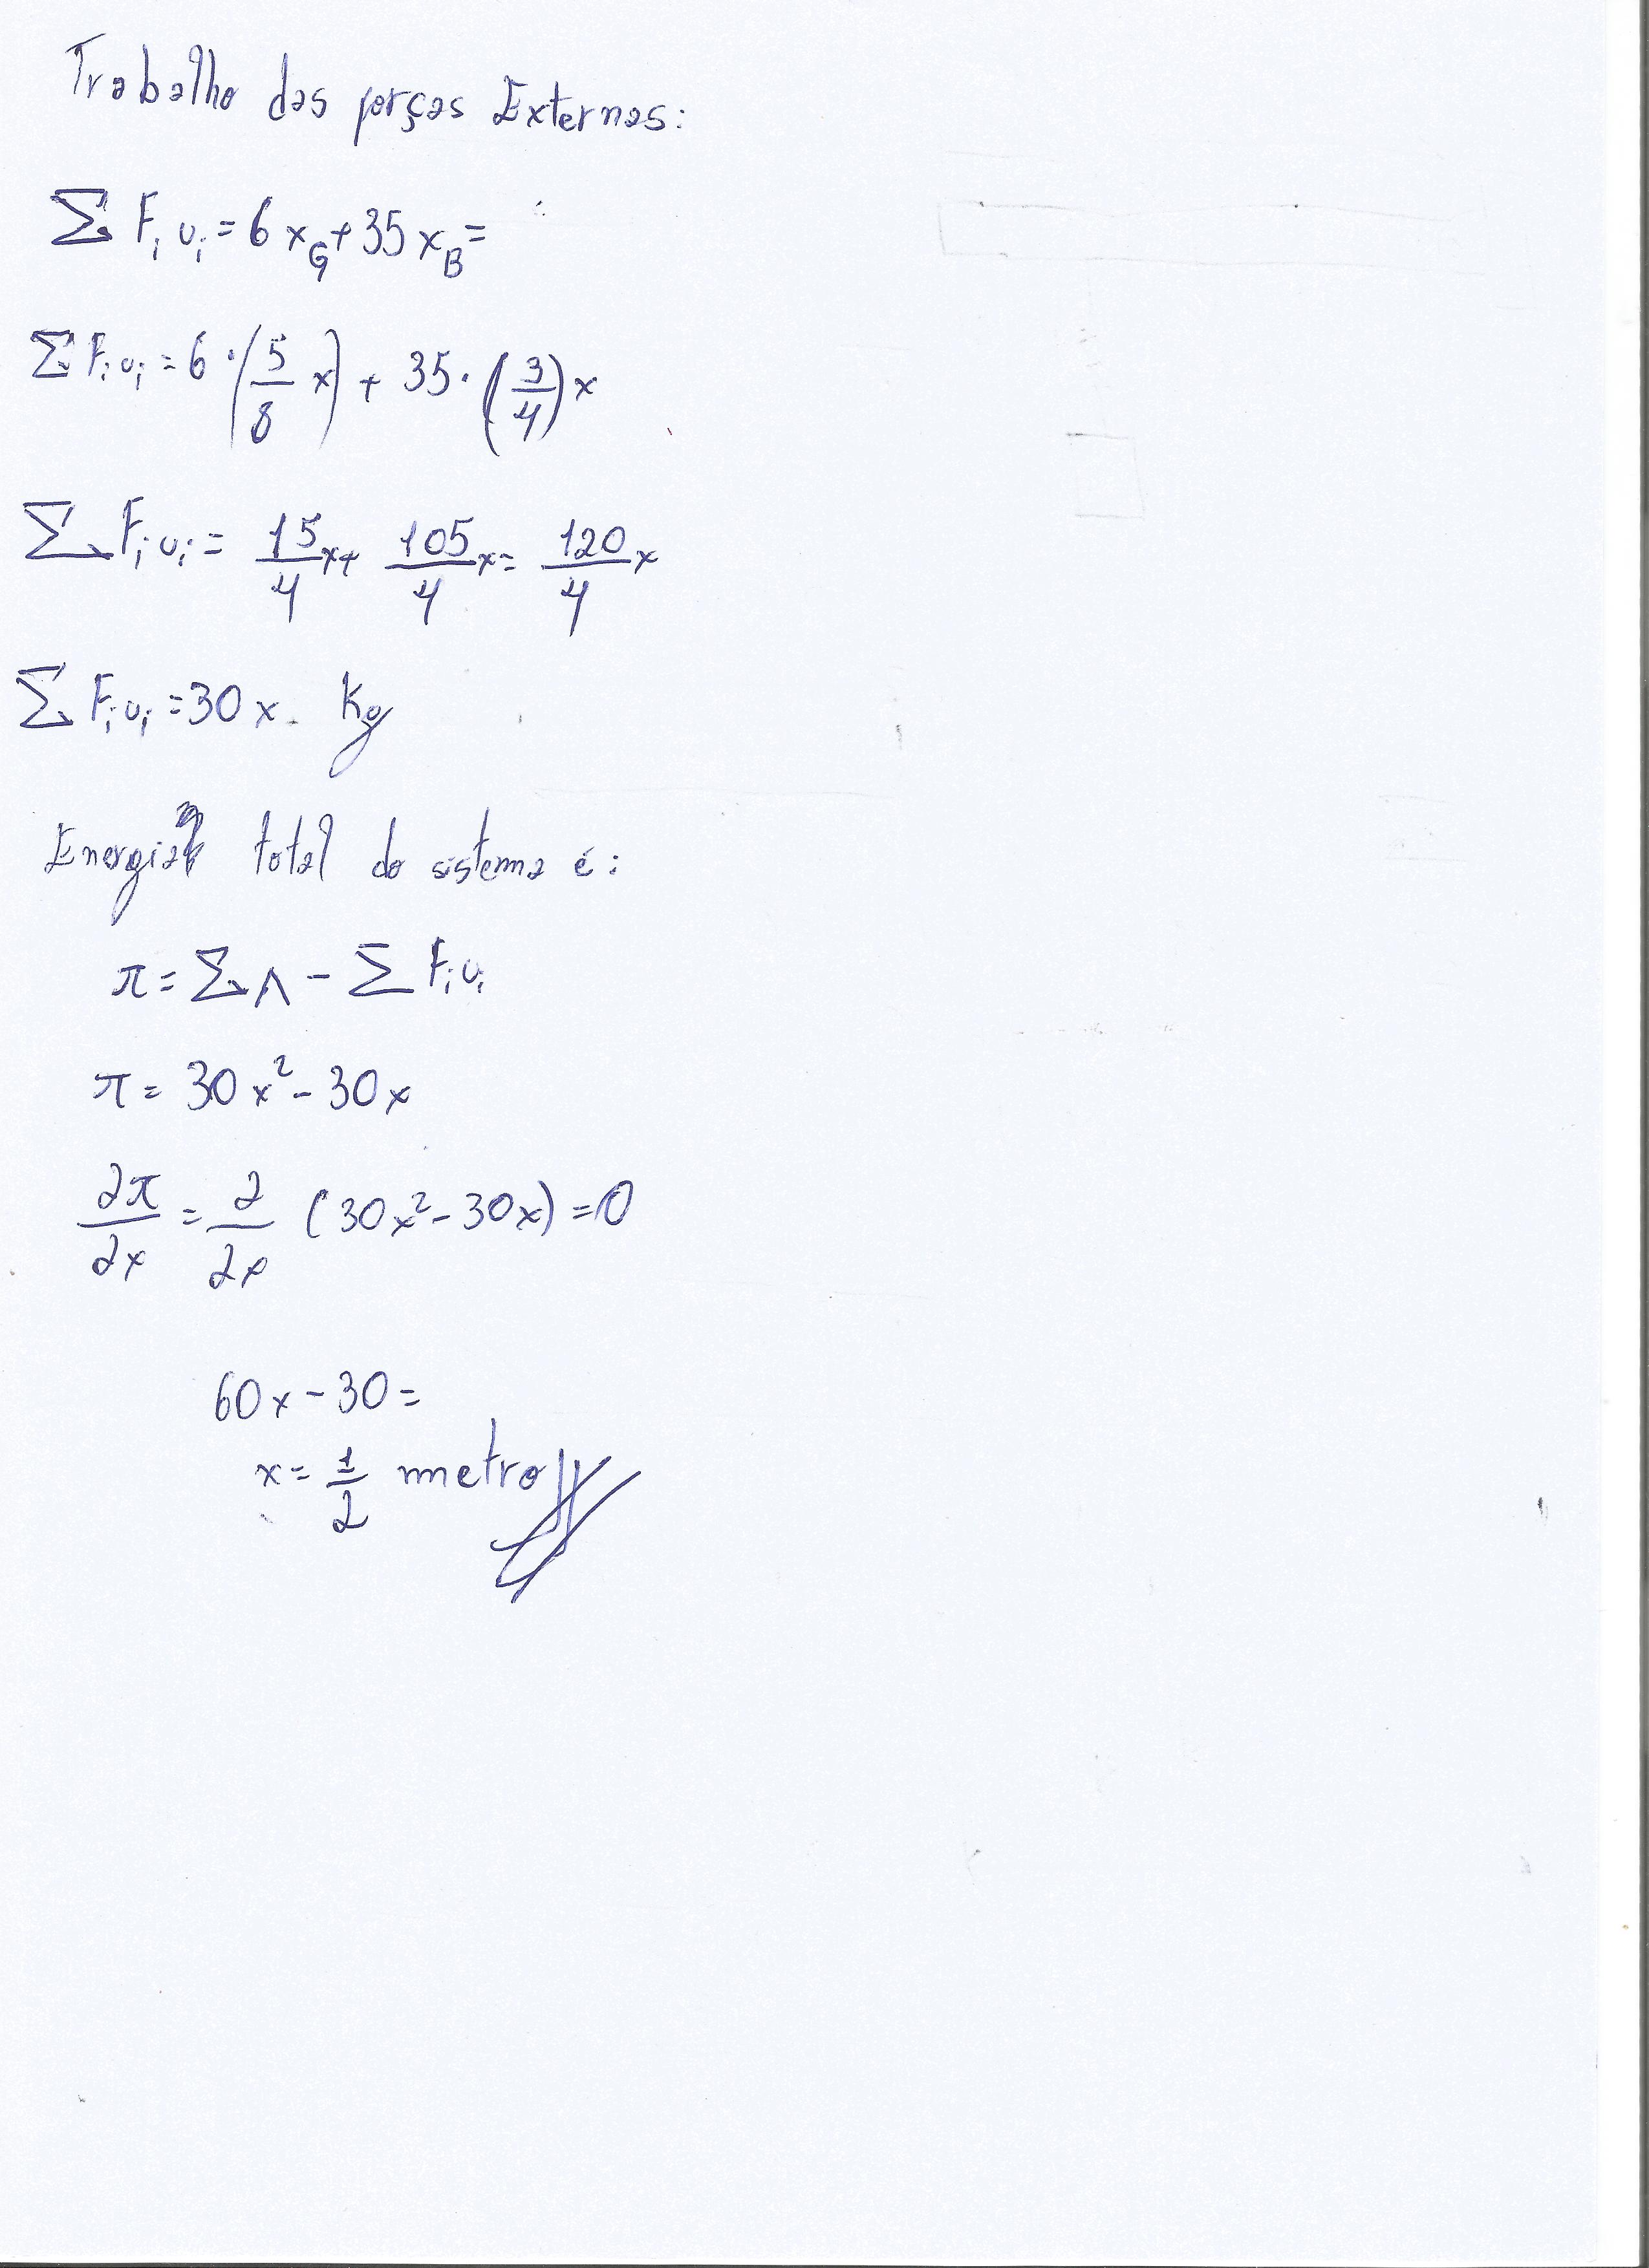 Trabalho das forças Externas:
Σ Fᵢ uᵢ = 6 x_G + 35 x_B =
Σ Fᵢ uᵢ = 6 · (5/8 x) + 35 · (3/4) x
Σ Fᵢ uᵢ = 15/4 x + 105/4 x = 120/4 x
Σ Fᵢ uᵢ = 30 x. Kg
Energia total do sistema é:
π = Σ Λ - Σ Fᵢ uᵢ
π = 30 x² - 30 x
∂π/∂x = ∂/∂x (30x² - 30x) = 0
60x - 30 =
x = 1/2 metro //